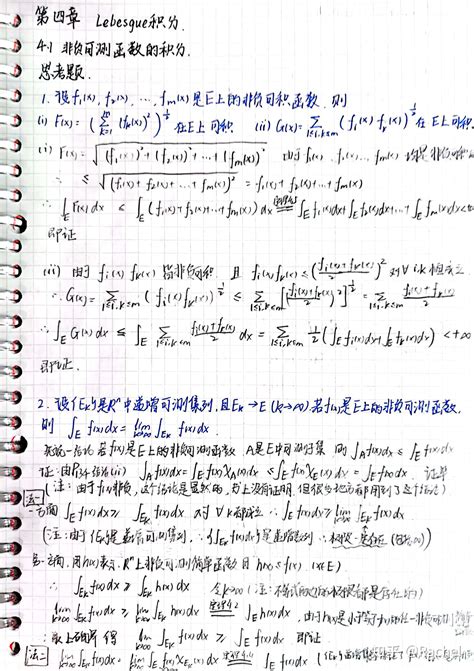 第四章 Lebesgue积分.
4.1 非负可测函数的积分.
思考题.
1. 设f₁(x), f₂(x), ⋯, fₘ(x)是E上的非负可积函数, 则
(i) F(x) = (∑ₖ₌₁ᵐ (fₖ(x))²)^{1/2} 在E上可积 (ii) G(x) = ∑_{1≤i,k≤m} (fᵢ(x) fₖ(x))^{1/2} 在E上可积
(i) F(x) = √((f₁(x))² + (f₂(x))² + ⋯ + (fₘ(x))²) 由于 f₁(x), f₂(x), ⋯, fₘ(x)
≤ √(f₁(x) + f₂(x) + ⋯ + fₘ(x))² = f₁(x) + f₂(x) + ⋯ + fₘ(x)
∴ ∫_E F(x)dx ≤ ∫_E (f₁(x) + f₂(x) + ⋯ + fₘ(x))dx = ∫_E f₁(x)dx + ∫_E f₂(x)dx + ⋯ + ∫_E fₘ(x)dx <
即证
(ii) 由于 fᵢ(x) fₖ(x) 皆非负可积 且 fᵢ(x)fₖ(x) ≤ ((fᵢ(x)+fₖ(x))/2)² 对∀ i,k 恒成立
∴ G(x) = ∑_{1≤i,k≤m} (fᵢ(x)fₖ(x))^{1/2} ≤ ∑_{1≤i,k≤m} [((fᵢ(x)+fₖ(x))/2)²]^{1/2} = ∑_{1≤i,k≤m} (fᵢ(x)+fₖ(x))/2
∴ ∫_E G(x)dx ≤ ∫_E ∑_{1≤i,k≤m} (fᵢ(x)+fₖ(x))/2 dx = ∑_{1≤i,k≤m} 1/2 (∫_E fᵢ(x)dx + ∫_E fₖ(x)dx) < +∞
即证.
2. 设{Eₖ}是Rⁿ中递增可测集列, 且Eₖ → E (k→∞). 若f(x)是E上的非负可测函数,
则 ∫_E f(x)dx = lim_{k→∞} ∫_{Eₖ} f(x)dx
若f(x)是E上的非负可测函数 A是E中可测子集 则 ∫_A f(x)dx ≤ ∫_E f(x)dx
(ii) ∫_A f(x)dx = ∫_E f(x)χ_A(x)dx ≤ ∫_E f(x)χ_E(x)dx = ∫_E f(x)dx. 证毕
(注: 由于f(x)非负, 这个结论是显然的, 书上没有证明, 但很多地方都用到了这个结论)
法一
一方面 ∫_E f(x)dx ≥ ∫_{Eₖ} f(x)dx 对∀k都成立 ∴ ∫_E f(x)dx ≥ lim_{k→∞} ∫_{Eₖ} f(x)dx
(注: 由于{Eₖ}是递增可测集列, ∴ {∫_{Eₖ} f(x)dx}是递增数列
另一方面, 用h(x)表示Rⁿ上非负可测简单函数且 h(x) ≤ f(x) (x∈E)
∴ ∫_{Eₖ} f(x)dx ≥ ∫_{Eₖ} h(x)dx 令k→∞
lim_{k→∞} ∫_{Eₖ} f(x)dx ≥ lim_{k→∞} ∫_{Eₖ} h(x)dx = ∫_E h(x)dx, 由于h(x)是
取上确界得 lim_{k→∞} ∫_{Eₖ} f(x)dx ≥ ∫_E f(x)dx 即证
法二 lim_{k→∞} ∫_{Eₖ} f(x)dx = lim_{k→∞} ∫_E f(x)χ_{Eₖ}(x)dx = ∫_E f(x)dx
知乎 @Rachel